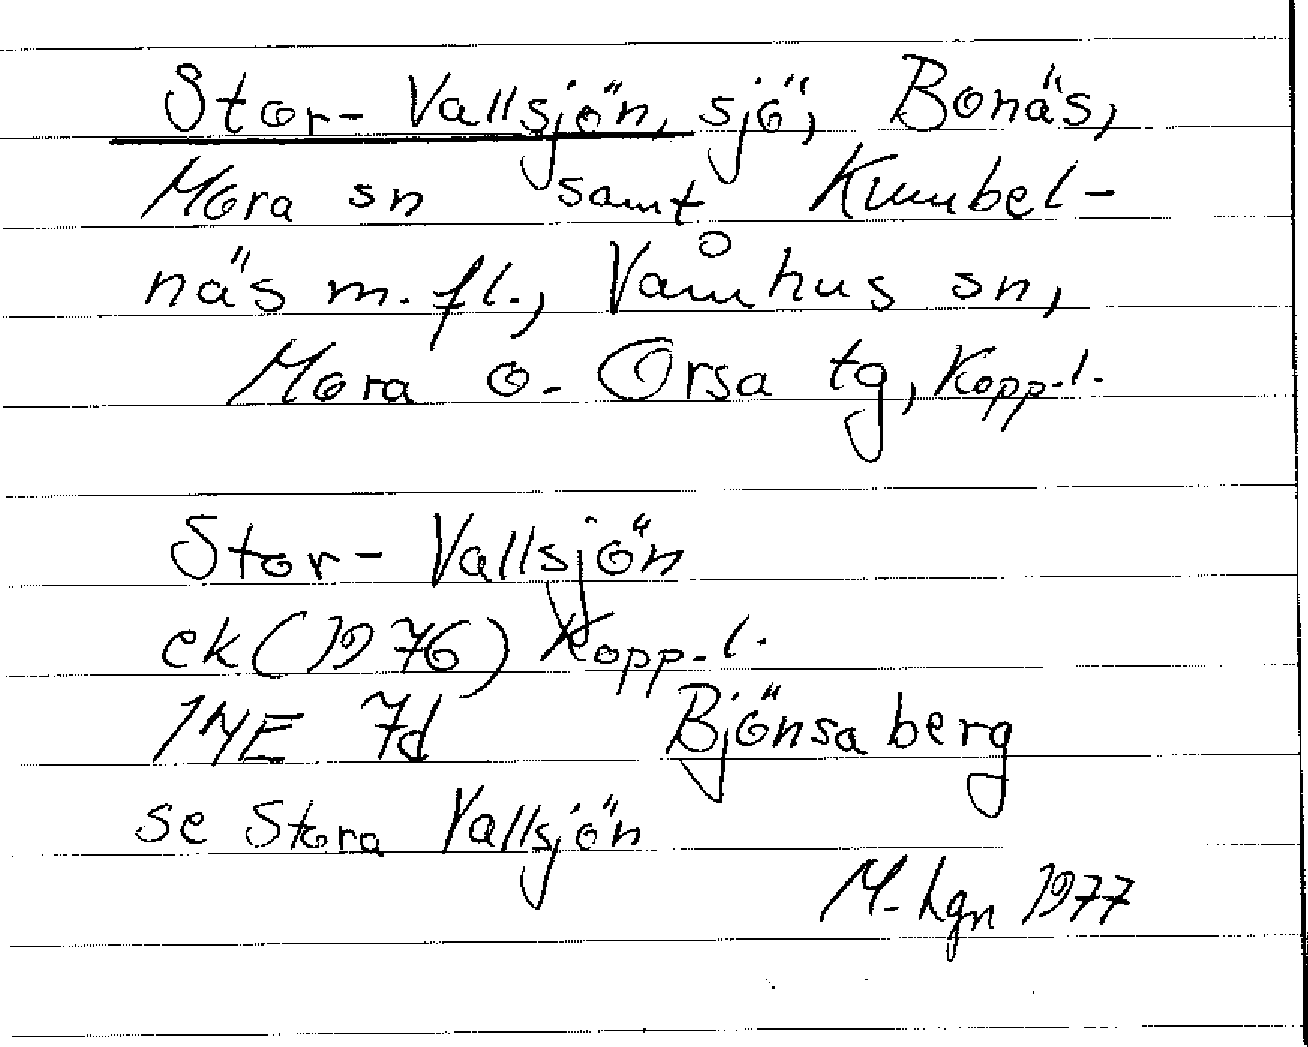 Stor-Vallsjön, sjö, Bonäs,
Mora sn samt Kumbel-
näs m.fl., Våmhus sn,
Mora o. Orsa tg, Kopp.l.
Stor-Vallsjön
ek (1976) Kopp.l.
14E 7d Björnsaberg
se Stora Vallsjön
M-hgn 1977